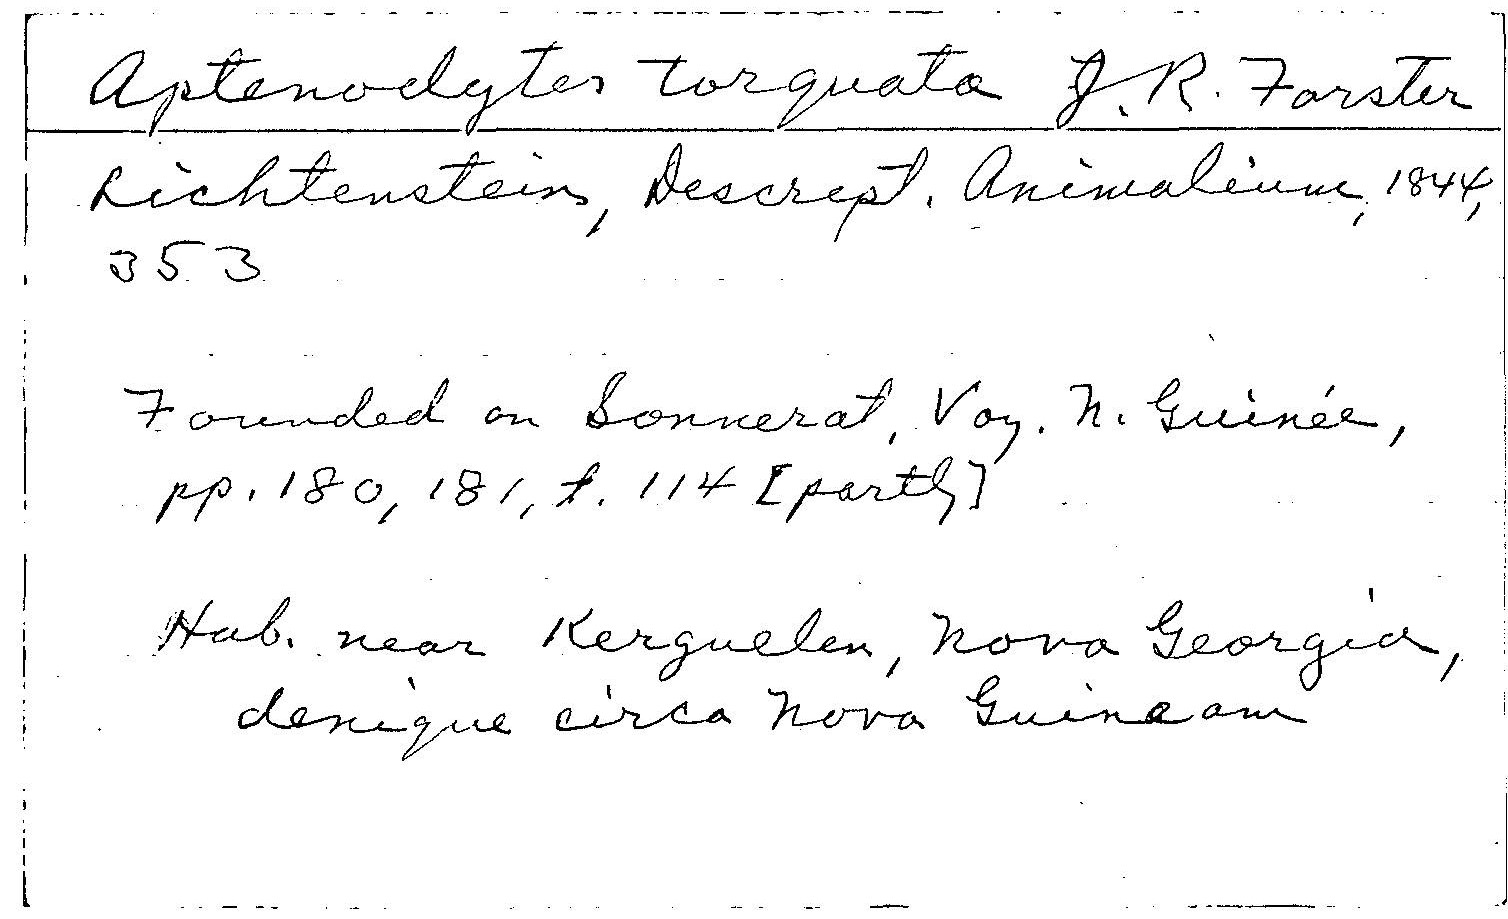 Aptenodytes torquata J. R. Forster
Lichtenstein, Descript. Animalium, 1844,
353
Founded on Sonnerat, Voy. N. Guinée,
pp. 180, 181, t. 114 [partly]
Hab. near Kerguelen, Nova Georgia,
denique circa Nova Guineam